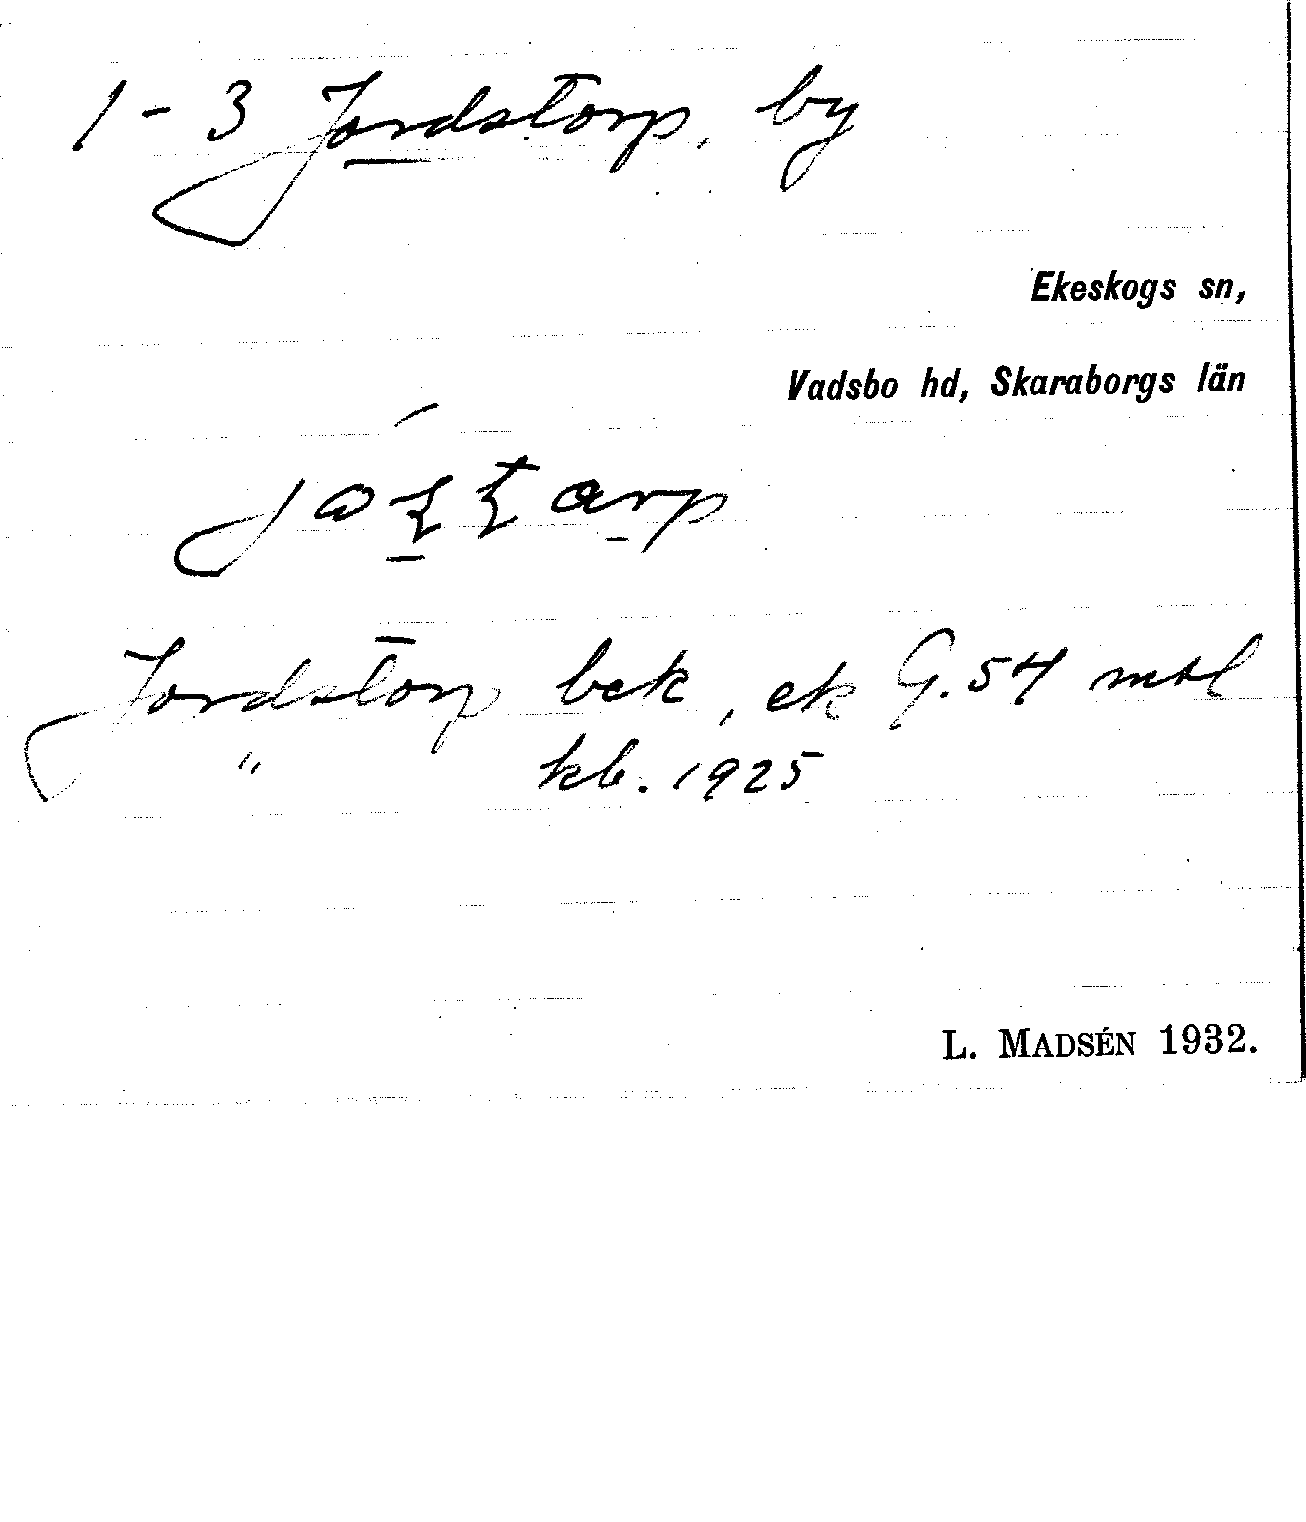 1-3 Jordstorp, by
Ekeskogs sn,
Vadsbo hd, Skaraborgs län
Jordstorp bek, ek G. 54 mtl
" kb. 1925
L. MADSÉN 1932.